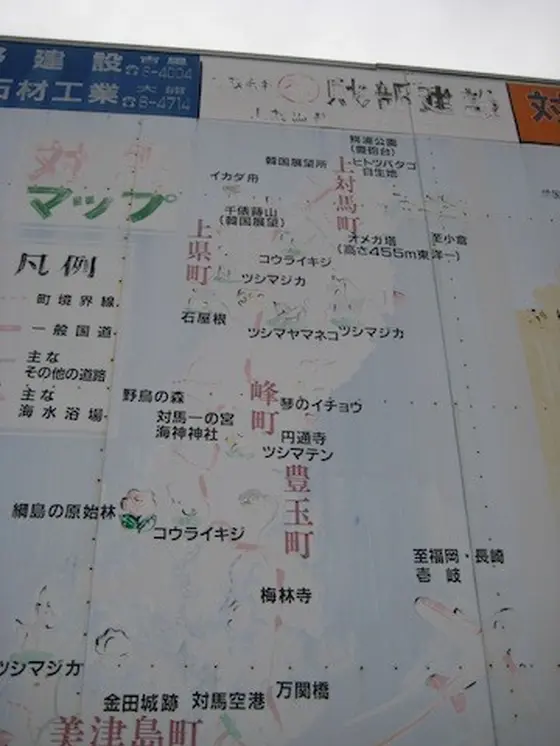 建設
☎6-4004
石材工業
☎6-4714
対
マップ
凡例
町境界線
一般国道
主な
その他の道路
主な
海水浴場
豊砲台)
韓国展望所
ヒトツバタゴ
自生地
イカダ舟
上対馬町
千俵蒔山
(韓国展望)
上県町
オメガ塔
(高さ455m東洋一)
至小倉
コウライキジ
ツシマジカ
石屋根
ツシマヤマネコ
ツシマジカ
峰町
野鳥の森
琴のイチョウ
対馬一の宮
海神神社
円通寺
ツシマテン
豊玉町
綱島の原始林
コウライキジ
至福岡・長崎
壱岐
梅林寺
ツシマジカ
金田城跡
対馬空港
万関橋
美津島町